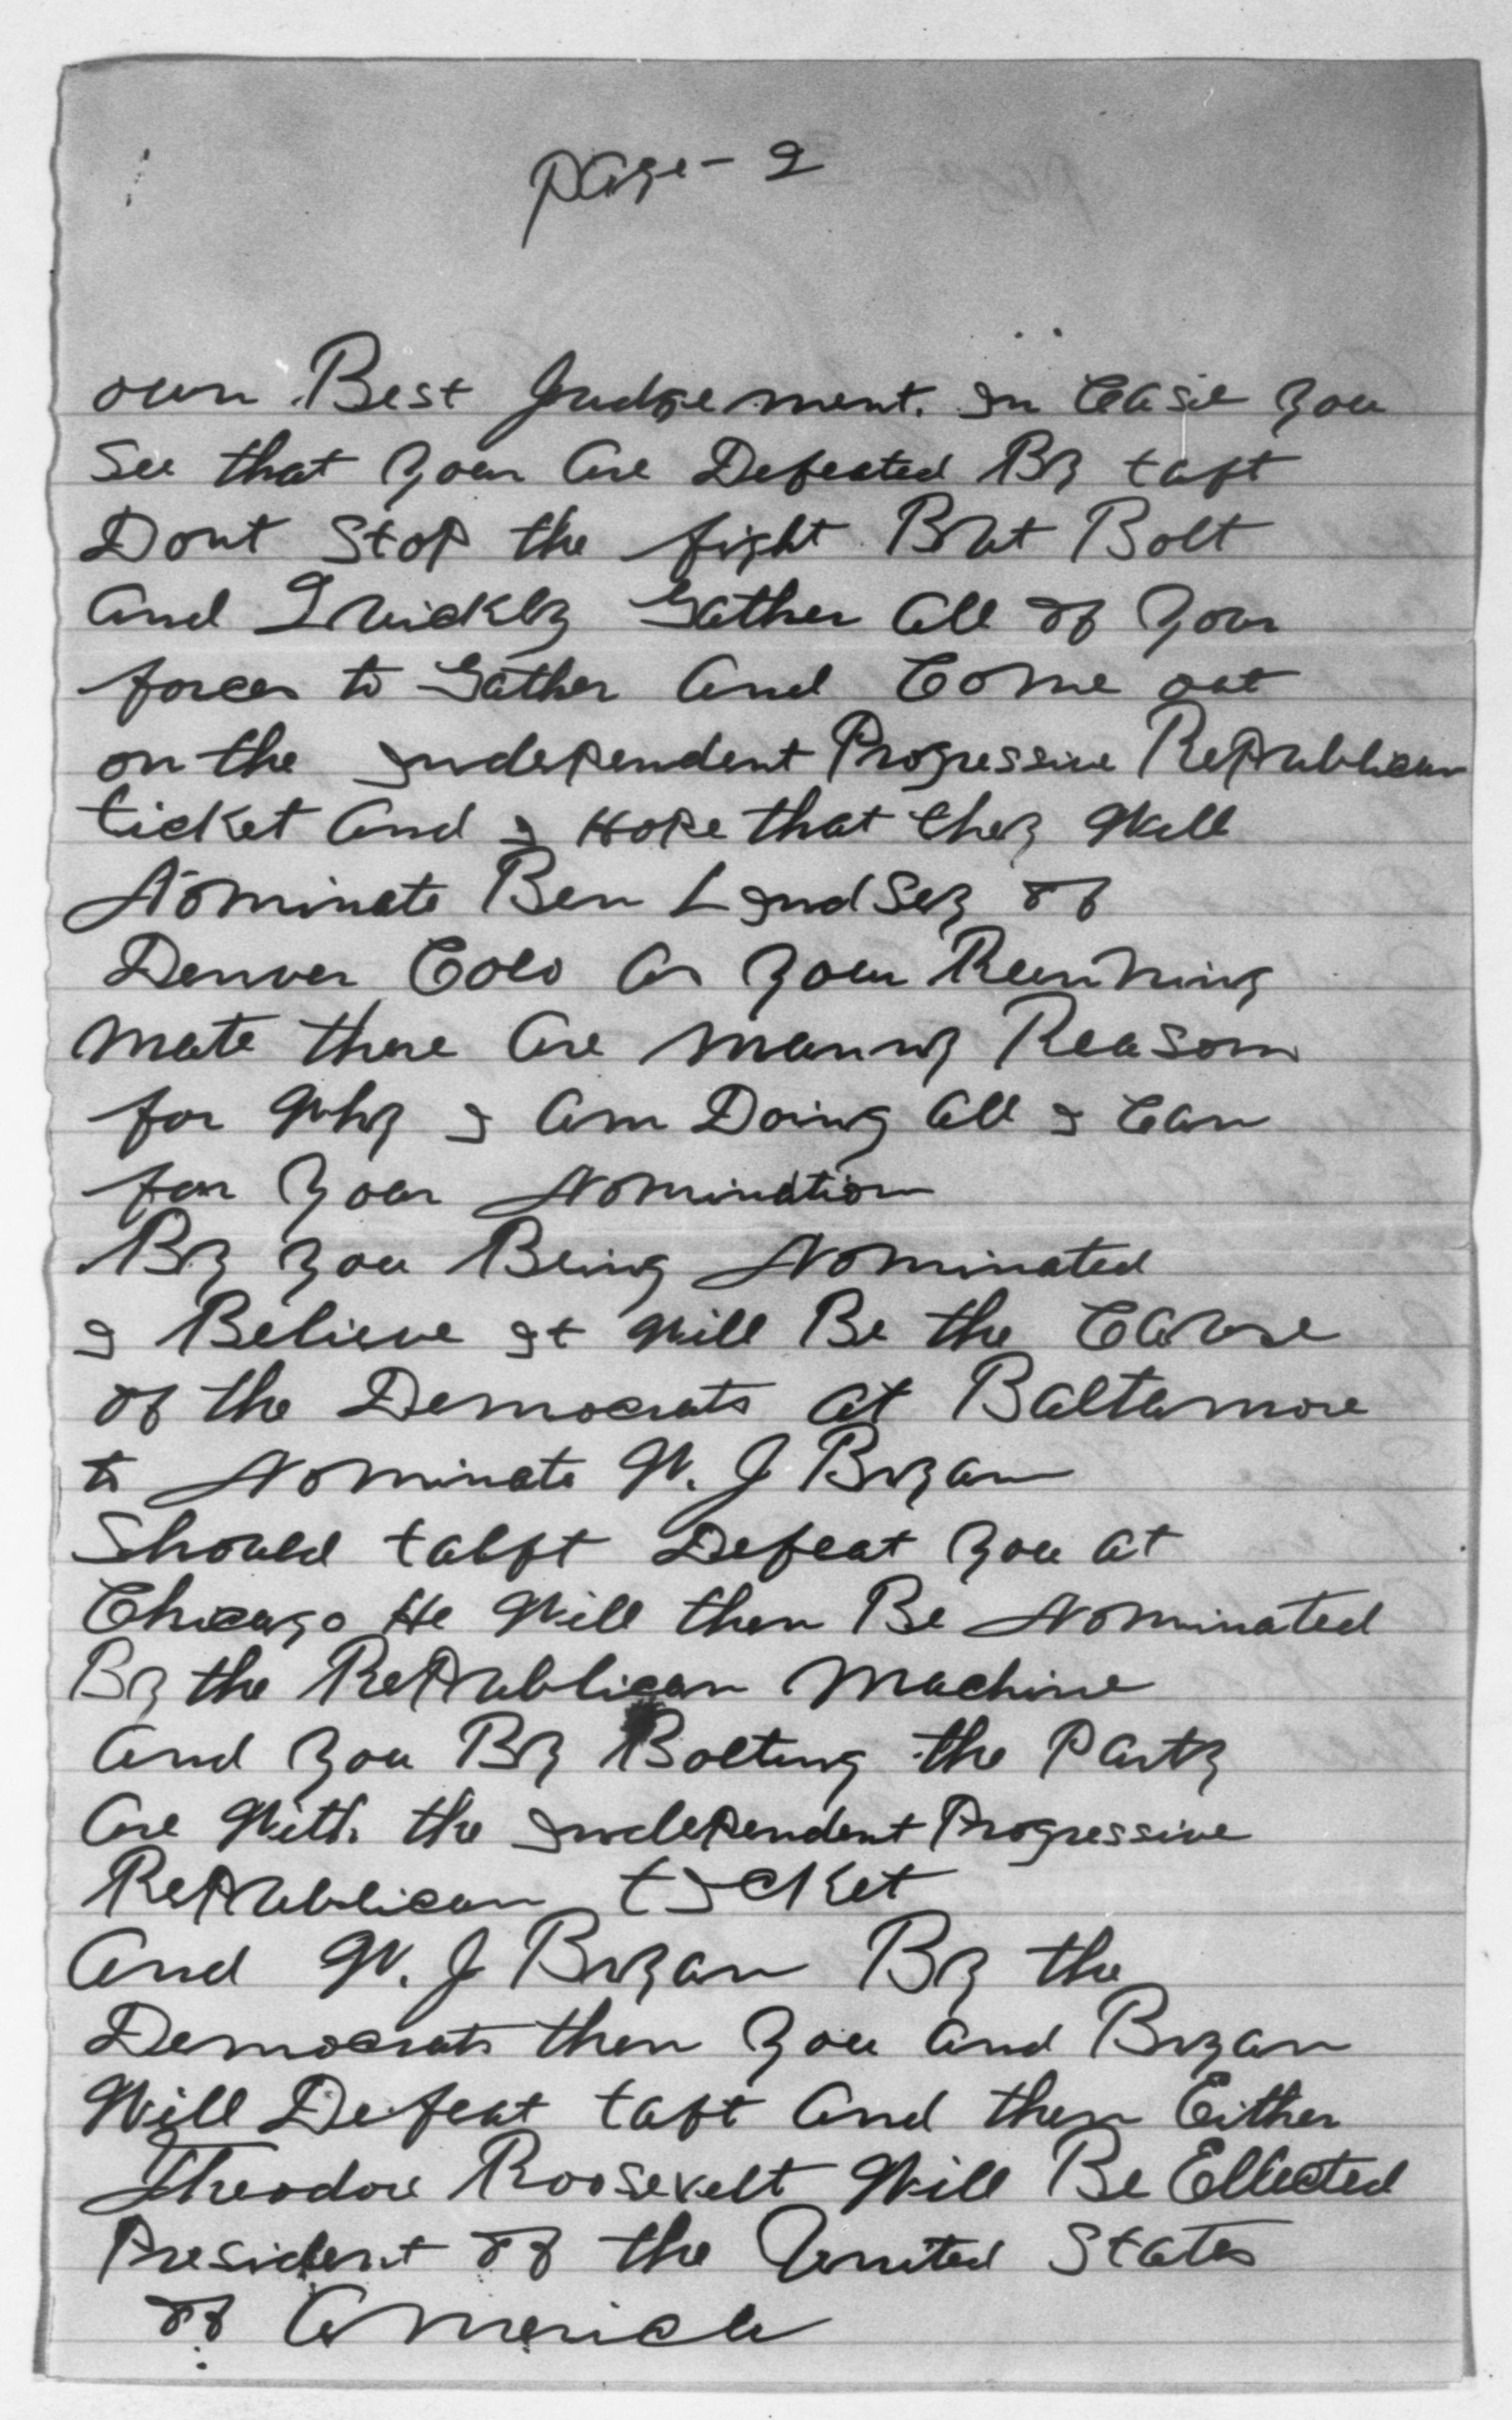 page - 2
own Best Judgement. In Case you
See that your Are Defeated By taft
Dont Stop the fight But Bolt
And Quickly Gather All of your
forces to Gather And Come out
on the Independent Progressive Republican
ticket And I Hope that they Will
Nominate Ben LIndSey of
Denver Colo As your Running
Mate there Are Manny Reasons
for Why I Am Doing All I Can
for your Nomination
By you Being Nominated
I Believe It Will Be the Cause
of the Democrats At Baltamore
to Nominate W. J Bryan
Should talft Defeat you At
Chicago He Will then Be Nominated
By the Republican Machine
And you By Bolting the Party
Are With the Independent Progressive
Republican tIcKet
And W. J Bryan By the
Democrats then you And Bryan
Will Defeat taft And then Either
Theodore Roosevelt Will Be Ellected
President of the United States
of America